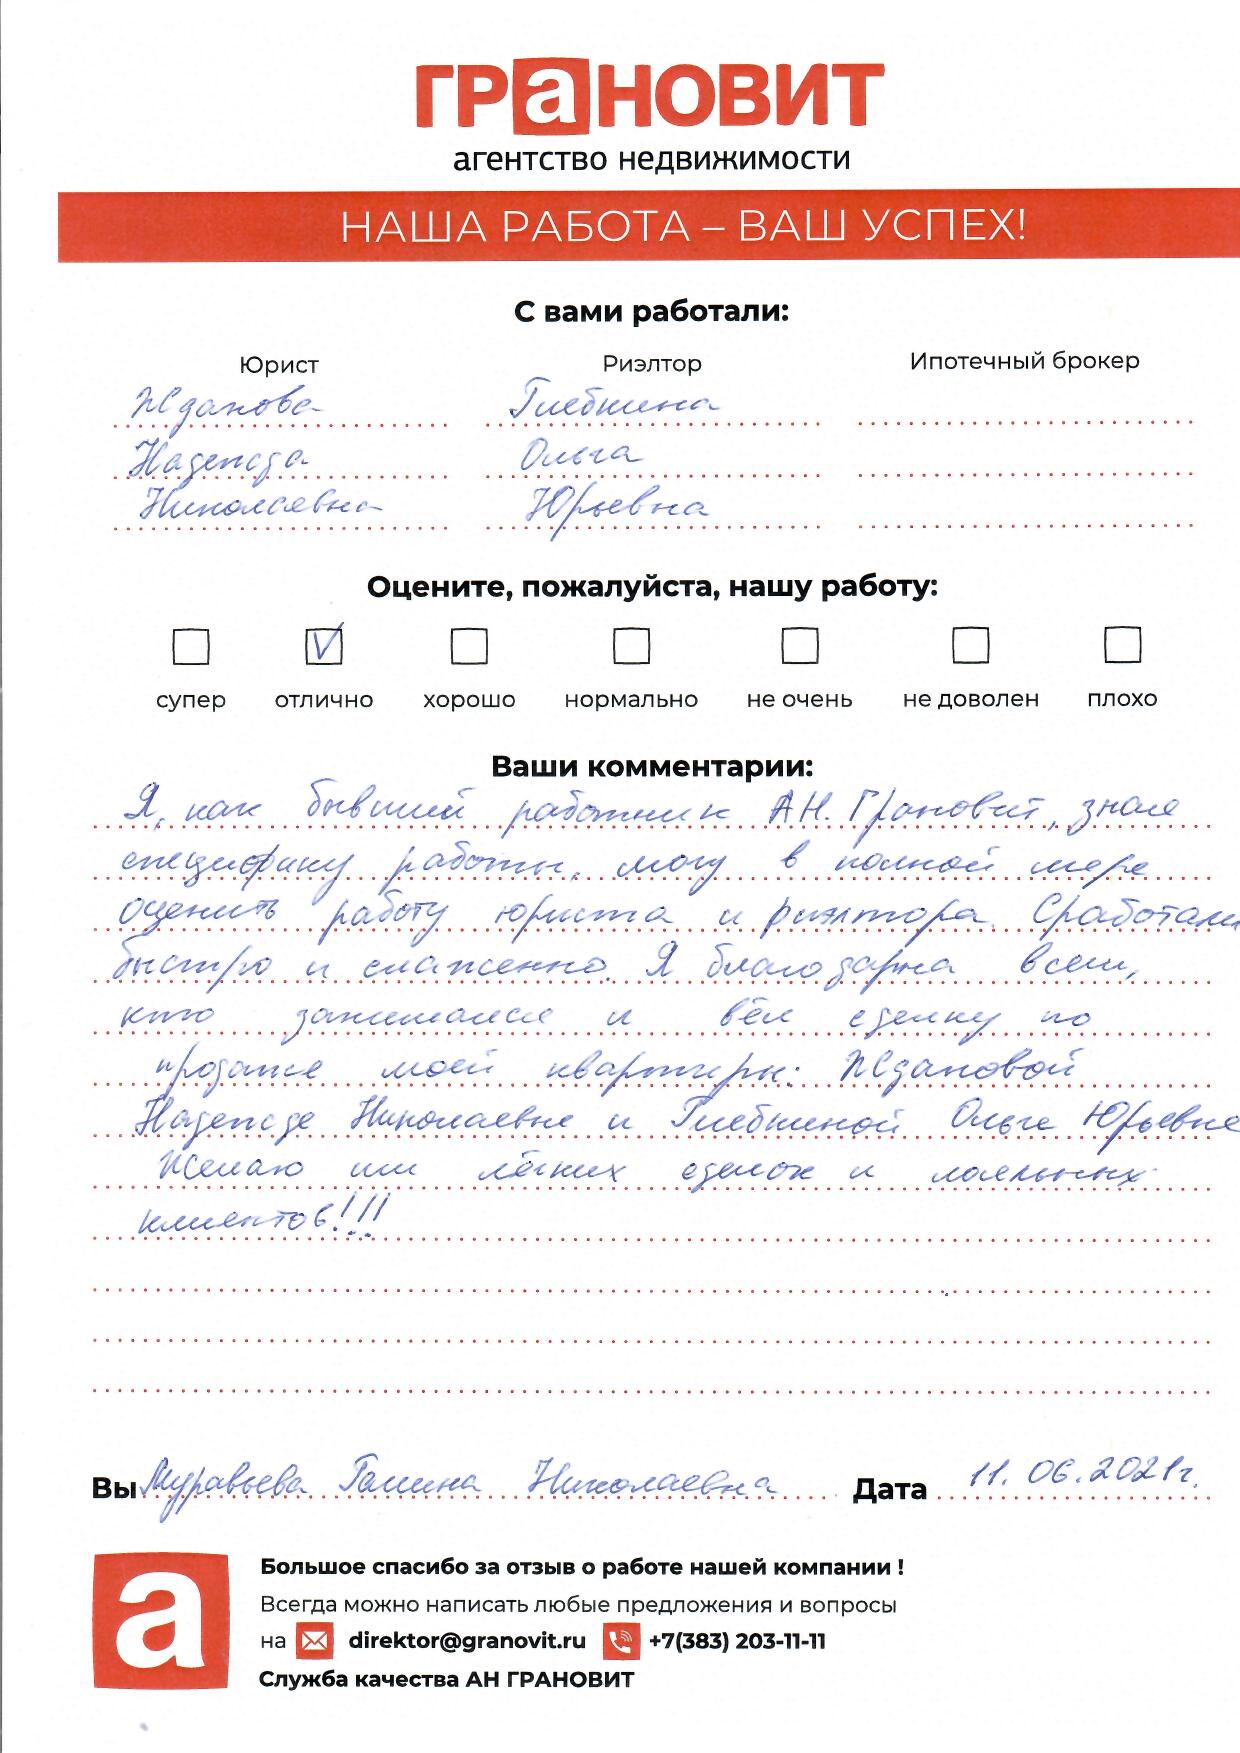 ГРаНОВИТ
агентство недвижимости
НАША РАБОТА – ВАШ УСПЕХ!
С вами работали:
Юрист Риэлтор Ипотечный брокер
Жданова Глебкина
Надежда Ольга
Николаевна Юрьевна
Оцените, пожалуйста, нашу работу:
супер отлично хорошо нормально не очень не доволен плохо
Ваши комментарии:
Я, как бывший работник АН. Грановит, зная
специфику работы, могу в полной мере
оценить работу юриста и риэлтора. Сработали
быстро и слаженно. Я благодарна всем,
кто занимался и вёл сделку по
продаже моей квартиры: Ждановой
Надежде Николаевне и Глебкиной Ольге Юрьевне
Желаю им лёгких сделок и лояльных
клиентов!!!
Вы Муравьева Галина Николаевна Дата 11.06.2021г.
а
Большое спасибо за отзыв о работе нашей компании !
Всегда можно написать любые предложения и вопросы
на direktor@granovit.ru +7(383) 203-11-11
Служба качества АН ГРАНОВИТ